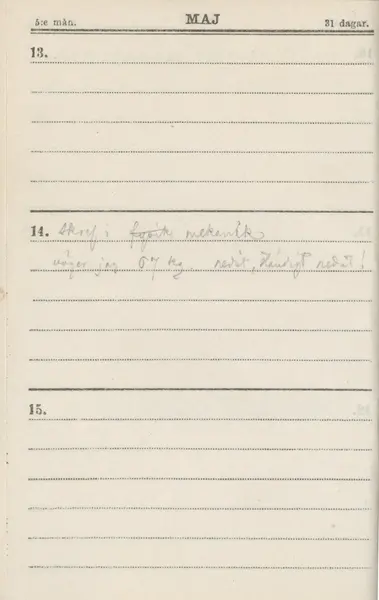 5:e mån. MAJ 31 dagar.
13.
14. Skref i fysik mekanik
väger jag 67 kg. nedåt, ständigt nedåt!
15.